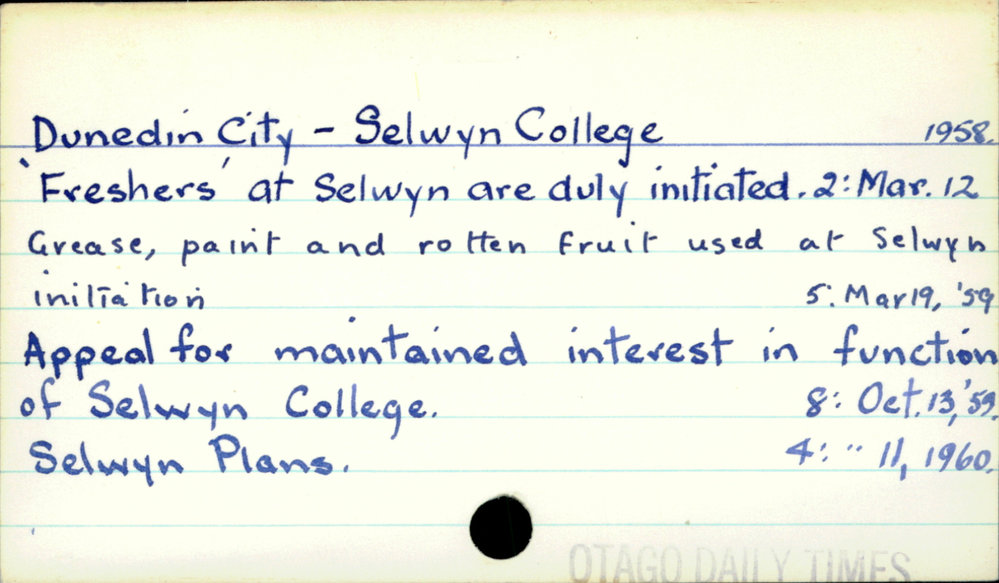 Dunedin City - Selwyn College 1958.
'Freshers' at Selwyn are duly initiated. 2: Mar. 12
Grease, paint and rotten fruit used at Selwyn
initiation 5: Mar 19, '59
Appeal for maintained interest in function
of Selwyn College. 8: Oct. 13, '59.
Selwyn Plans. 4: " 11, 1960.
OTAGO DAILY TIMES